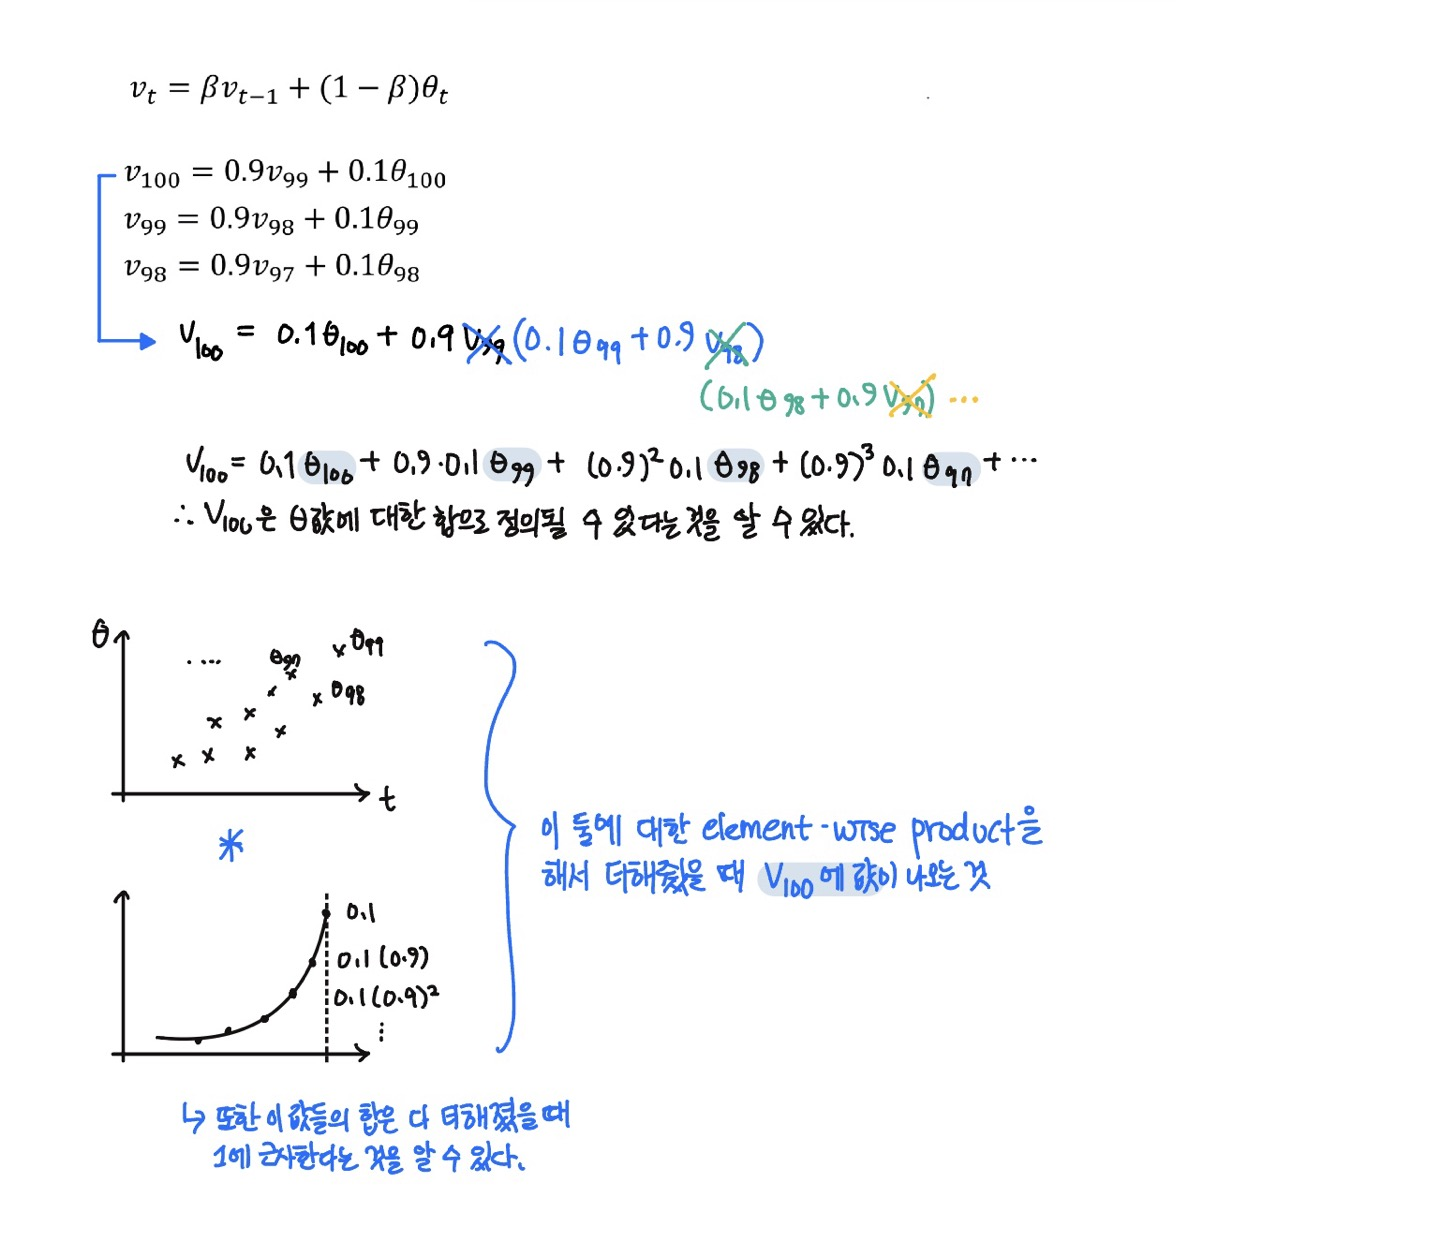 v_t = βv_{t−1} + (1 − β)θ_t
v_100 = 0.9v_99 + 0.1θ_100
v_99 = 0.9v_98 + 0.1θ_99
v_98 = 0.9v_97 + 0.1θ_98
V_100 = 0.1θ_100 + 0.9 V_99 (0.1θ_99 + 0.9 V_98)
(0.1θ_98 + 0.9V_97) ...
V_100 = 0.1θ_100 + 0.9·0.1θ_99 + (0.9)² 0.1θ_98 + (0.9)³ 0.1θ_97 + ...
∴ V_100은 θ값에 대한 합으로 정의될 수 있다는 것을 알 수 있다.
θ
.... θ_97 θ_99
θ_98
t
*
이 둘에 대한 element-wise product을
해서 더해줬을 때 V_100에 값이 나오는 것
0.1
0.1(0.9)
0.1(0.9)²
⋮
↳ 또한 이 값들의 합은 다 더해졌을 때
1에 근사한다는 것을 알 수 있다.